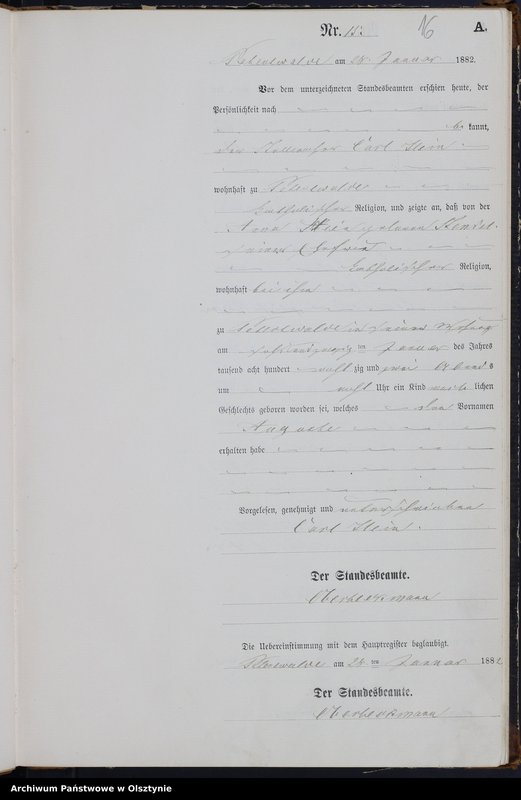 Nr. 15. 16 A.
am 28 Januar 1882.
Vor dem unterzeichneten Standesbeamten erschien heute, der
Persönlichkeit nach
be kannt,
Carl Stein
wohnhaft zu
katholischer Religion, und zeigte an, daß von der
Anna Stein geborenen
seiner Ehefrau
katholischer Religion,
wohnhaft bei ihm
zu in seiner Wohnung
am ten Januar des Jahres
tausend acht hundert acht zig und zwei Abends
um acht Uhr ein Kind weib lichen
Geschlechts geboren worden sei, welches den Vornamen
Auguste
erhalten habe
Vorgelesen, genehmigt und unterschrieben
Carl Stein.
Der Standesbeamte.
Die Uebereinstimmung mit dem Hauptregister beglaubigt.
am 28 ten Januar 1882
Der Standesbeamte.
Archiwum Państwowe w Olsztynie